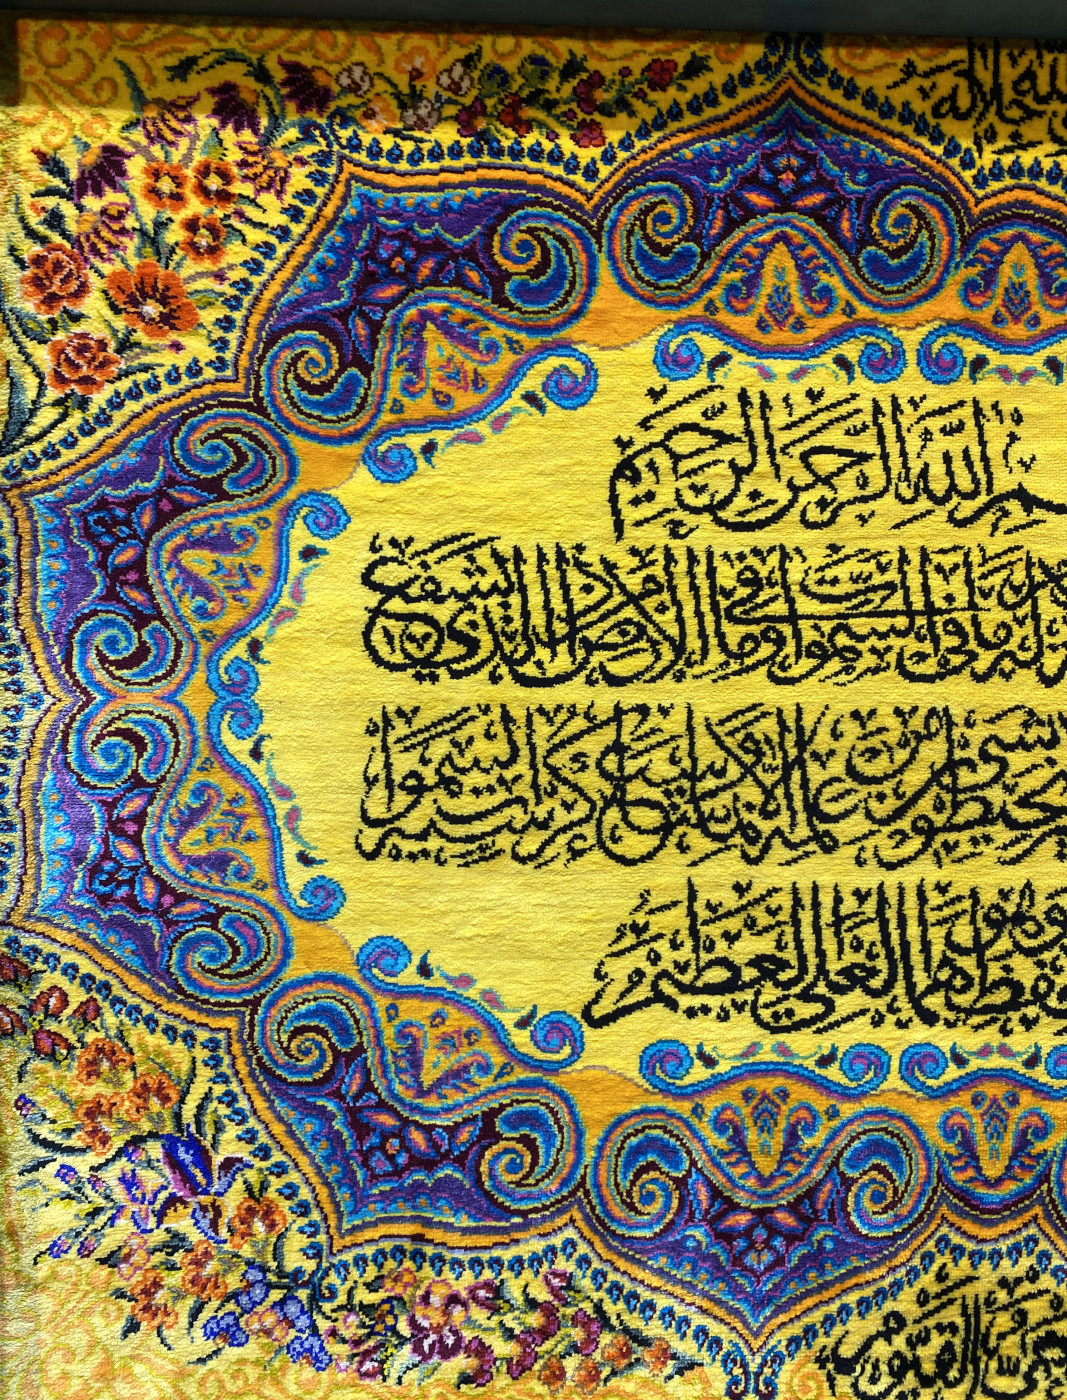 سم الله الرحمن الرحيم
له ما في السموات وما في الأرض من ذا الذي يشفع
يحيطون بشيء من علمه إلا بما شاء وسع كرسيه السموات
حفظهما وهو العلي العظيم
القيوم